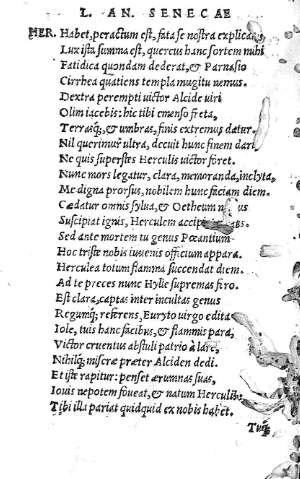 L. AN. SENECAE
HER. Habet, peractum est, fata se nostra explicant,
Lux ista summa est, quercus hanc sortem mihi
Fatidica quondam dederat, & Parnasio
Cirrhea quatiens templa mugitu nemus.
Dextra perempti victor Alcide viri
Olim iacebis: hic tibi emenso freta,
Terrasq;, & umbras, finis extremus datur.
Nil querimur ultra, decuit hunc finem dari,
Ne quis superstes Herculis victor foret.
Nunc mors legatur, clara, memoranda, inclyta,
Me digna prorsus, nobilem hunc faciam diem.
Cædatur omnis sylua, & Oetheum
Suscipiat ignis, Herculem accipi
Sed ante mortem tu genus Pœantium
Hoc triste nobis iuuenis officium appara.
Herculea totum flamma succendat diem.
Ad te preces nunc Hylle supremas firo.
Est clara, captas inter incultas genus
Regumq; referens, Euryto virgo edita
Iole, tuis hanc facibus, & flammis para,
Victor cruentus abstuli patrio à lare,
Nihilq; miseræ præter Alciden dedi.
Et iste rapitur: penset ærumnas suas,
Iouis nepotem foueat, & natum Herculis:
Tibi illa pariat quidquid ex nobis habet.
Tuq;